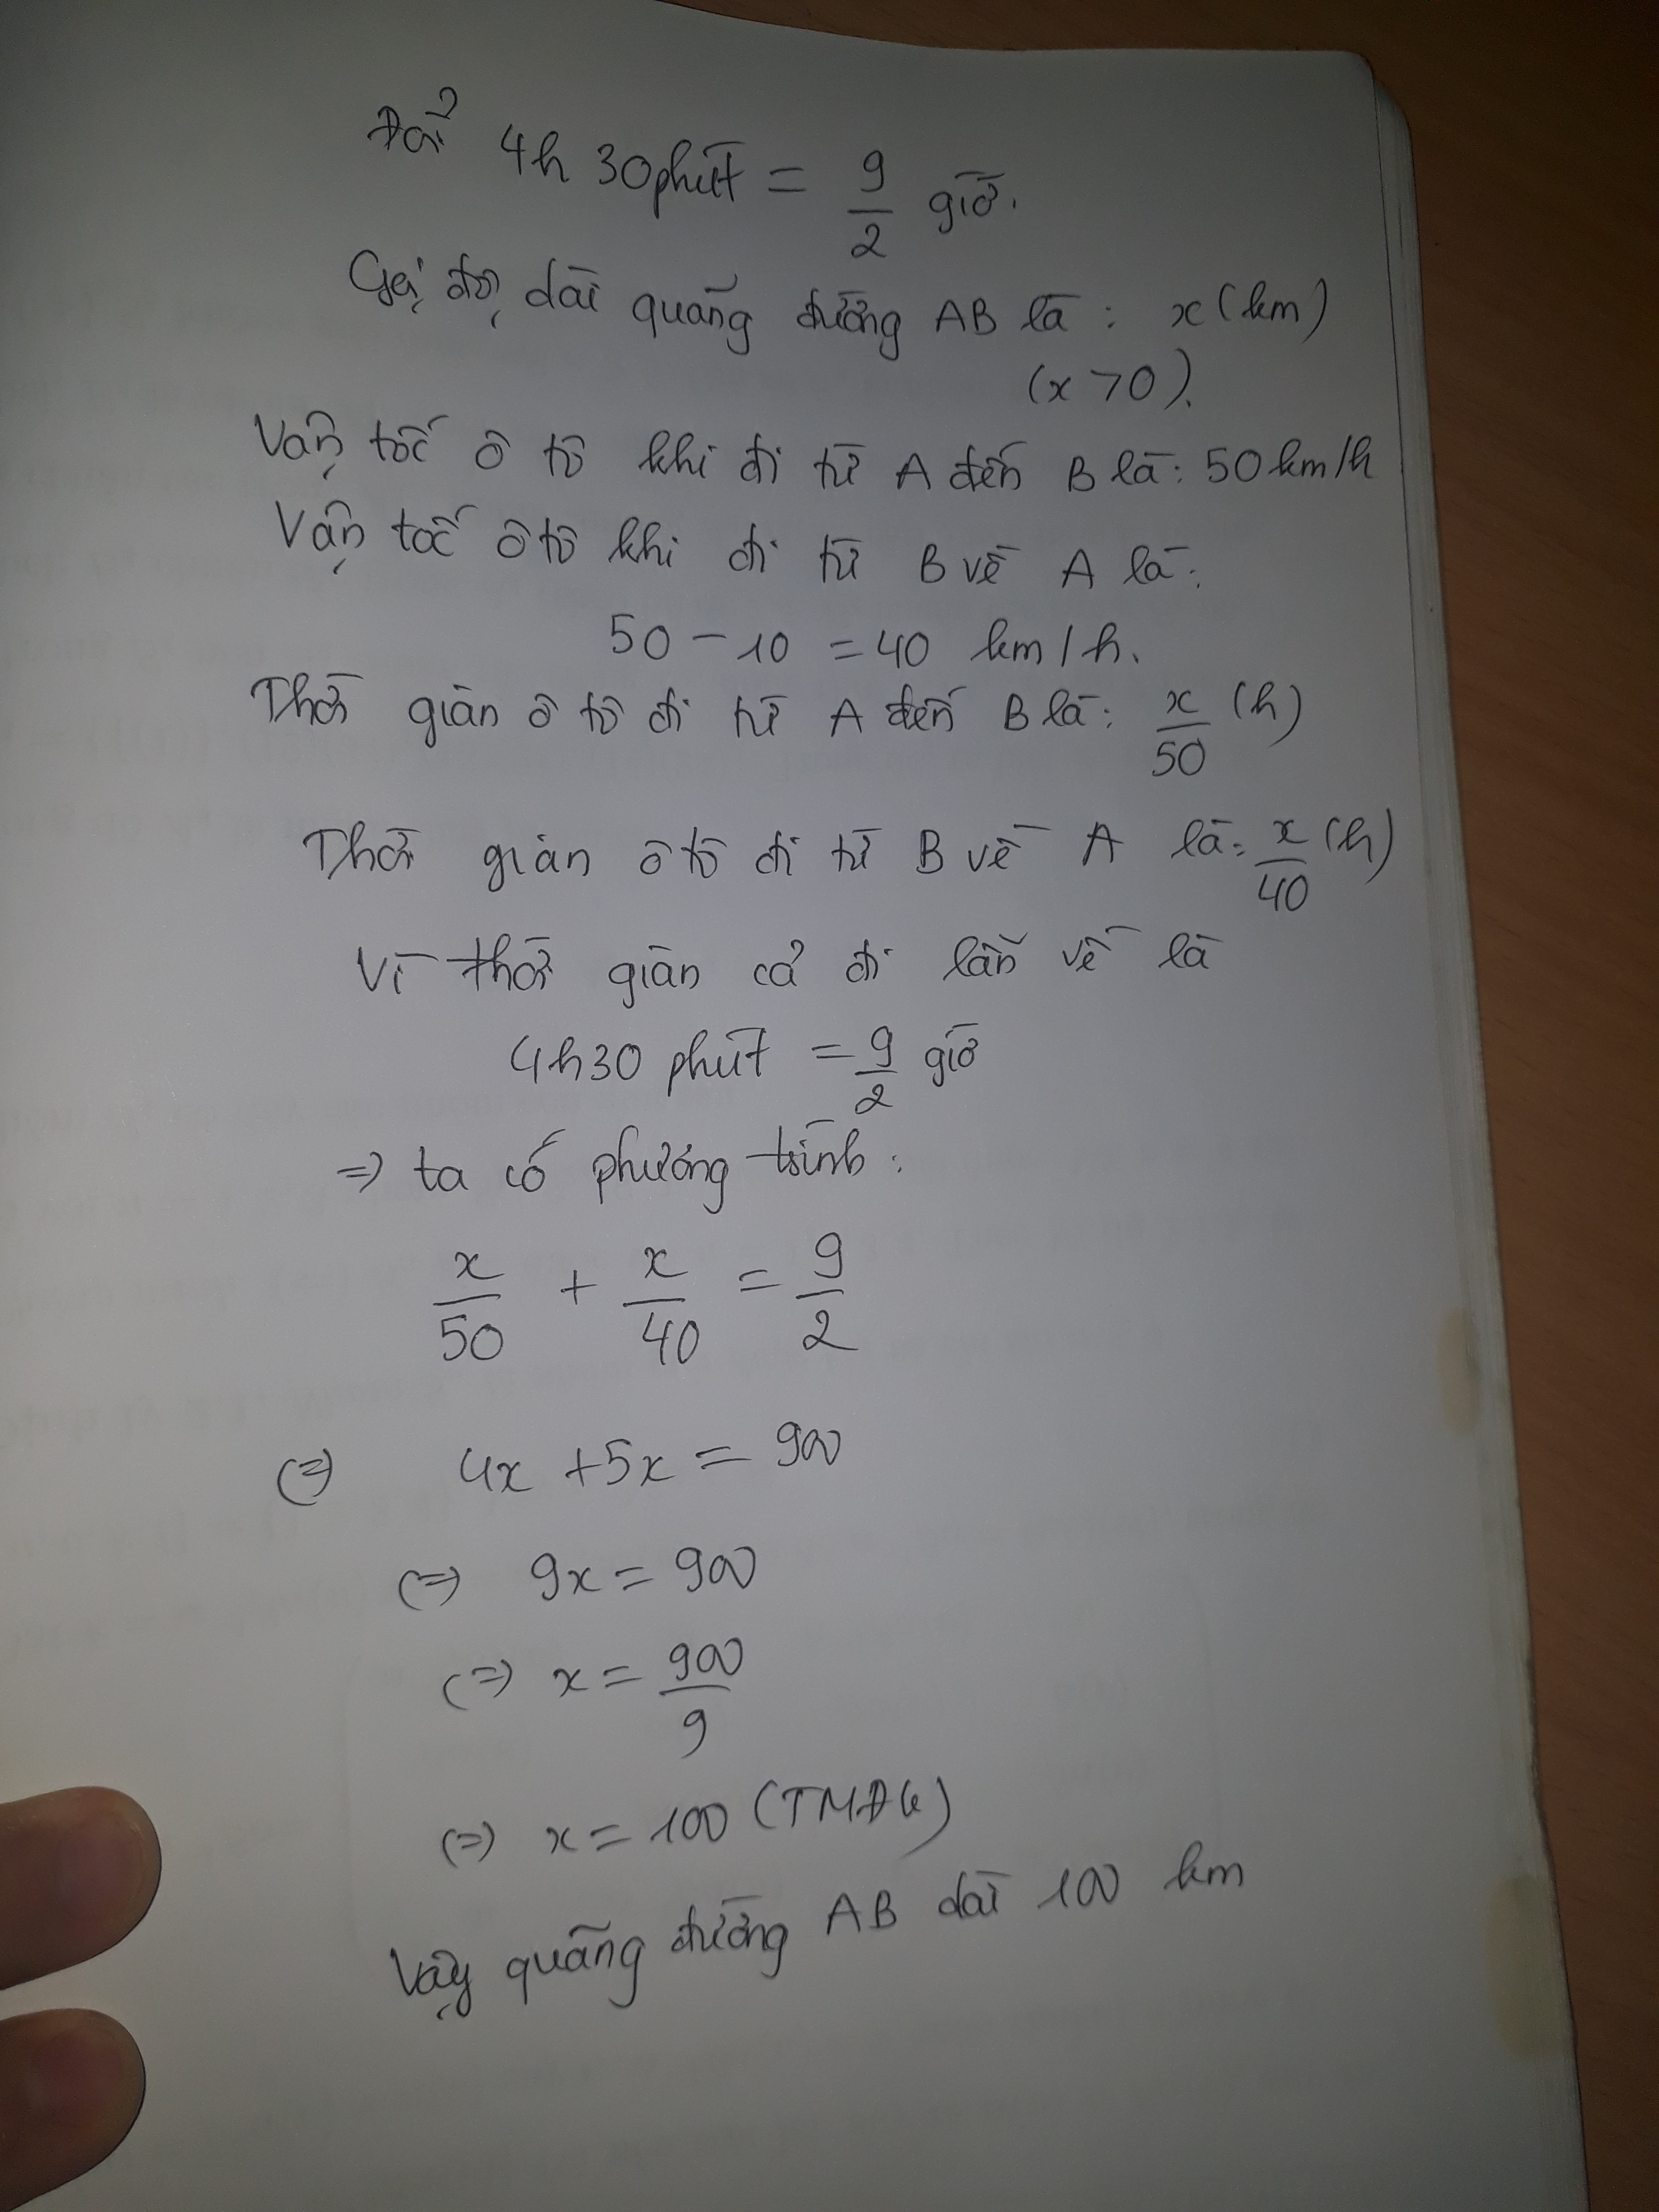 Đổi 4h 30 phút = 9/2 giờ.
Gọi độ dài quãng đường AB là : x (km)
(x > 0).
Vận tốc ô tô khi đi từ A đến B là : 50 km/h
Vận tốc ô tô khi đi từ B về A là :
50 - 10 = 40 km/h.
Thời gian ô tô đi từ A đến B là : x/50 (h)
Thời gian ô tô đi từ B về A là : x/40 (h)
Vì thời gian cả đi lẫn về là
4h30 phút = 9/2 giờ
=> ta có phương trình :
x/50 + x/40 = 9/2
(=) 4x + 5x = 900
(=) 9x = 900
(=) x = 900/9
(=) x = 100 (TMĐK)
Vậy quãng đường AB dài 100 km